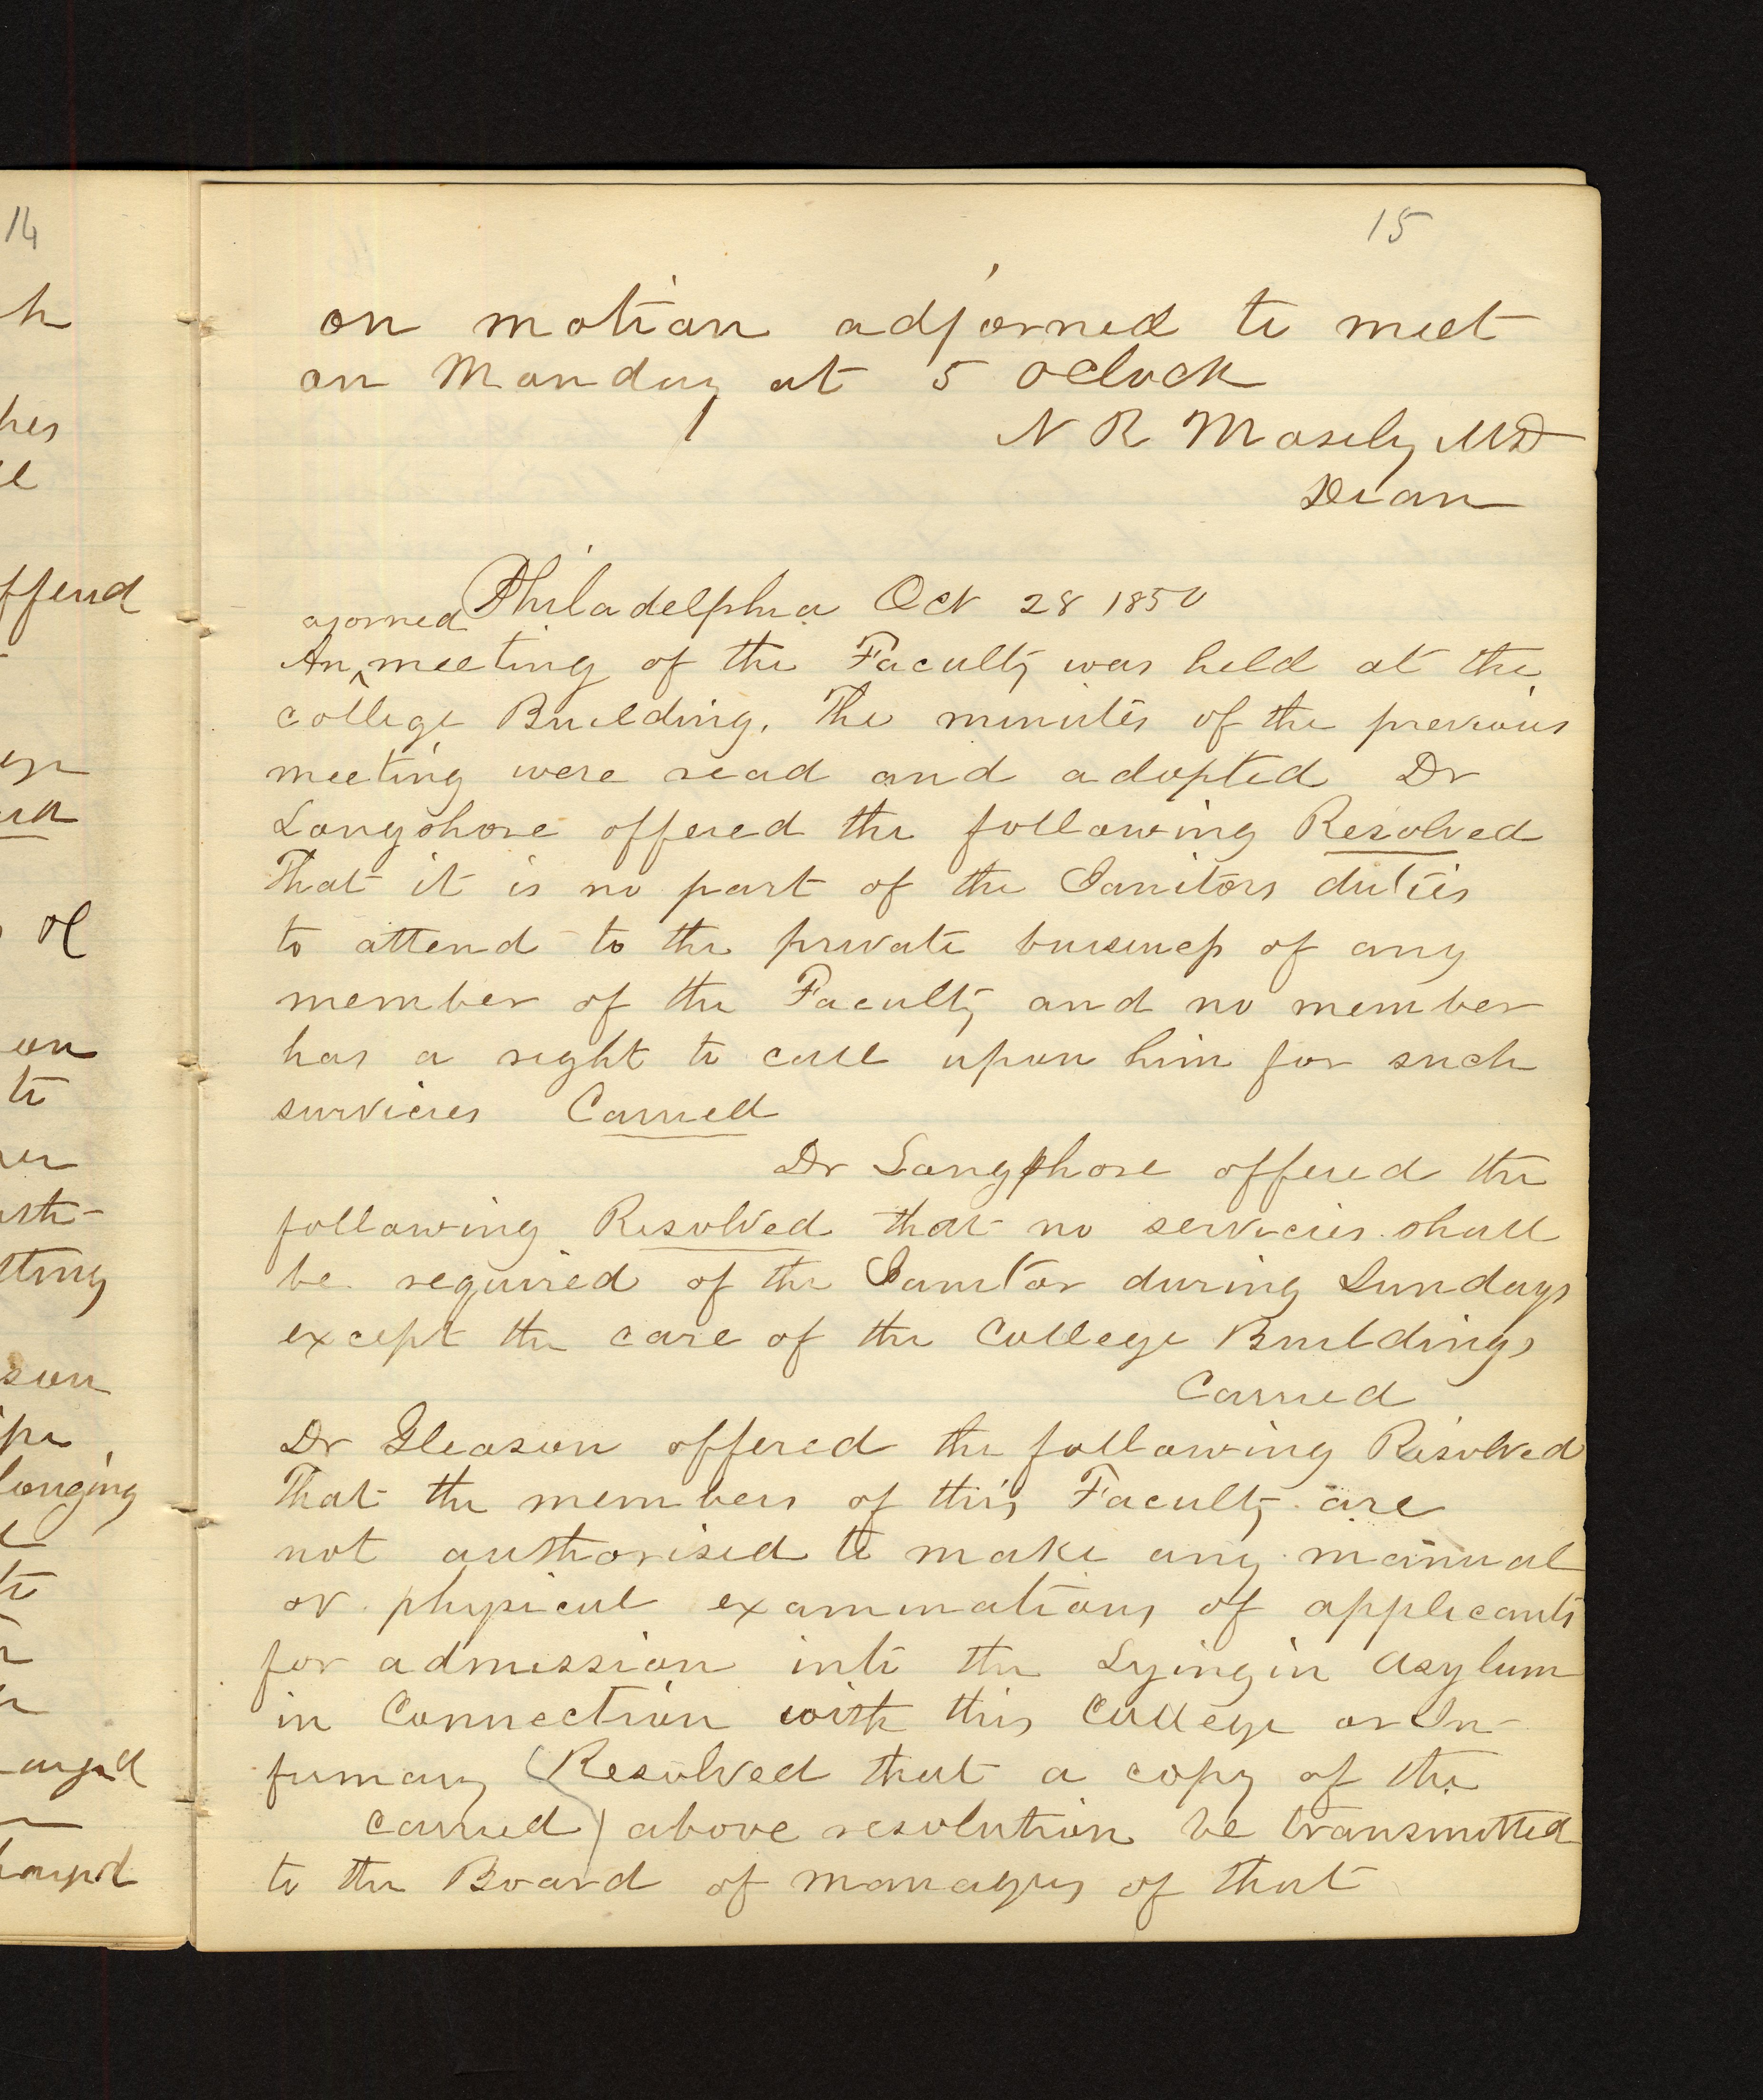 14
h
hes
ffend
on
to
sting
son
longing
15
on motion adjorned to meet
on Monday at 5 oclock
N R Mosely MD
Dean
Philadelphia Oct 28 1850
ajorned
An ^ meeting of the Faculty was held at the
college Building. The minutes of the previous
meeting were read and adopted Dr
Longshore offered the following Resolved
That it is no part of the Janitors duties
to attend to the private buisness of any
member of the Faculty and no member
has a right to call upon him for such
survicies Carried
Dr Longshore offered the
following Resolved that no servicies shall
be required of the Janitor during Sundays
except the care of the College Buildings
Carried
Dr Gleason offered the following Resolved
That the members of this Faculty are
not authorised to make any manual
or physical examinations of applicants
for admission into the Lying in Asylum
in Connection with this College or In-
firmary (Resolved that a copy of the
carried) above resolution be transmitted
to the Board of managers of that